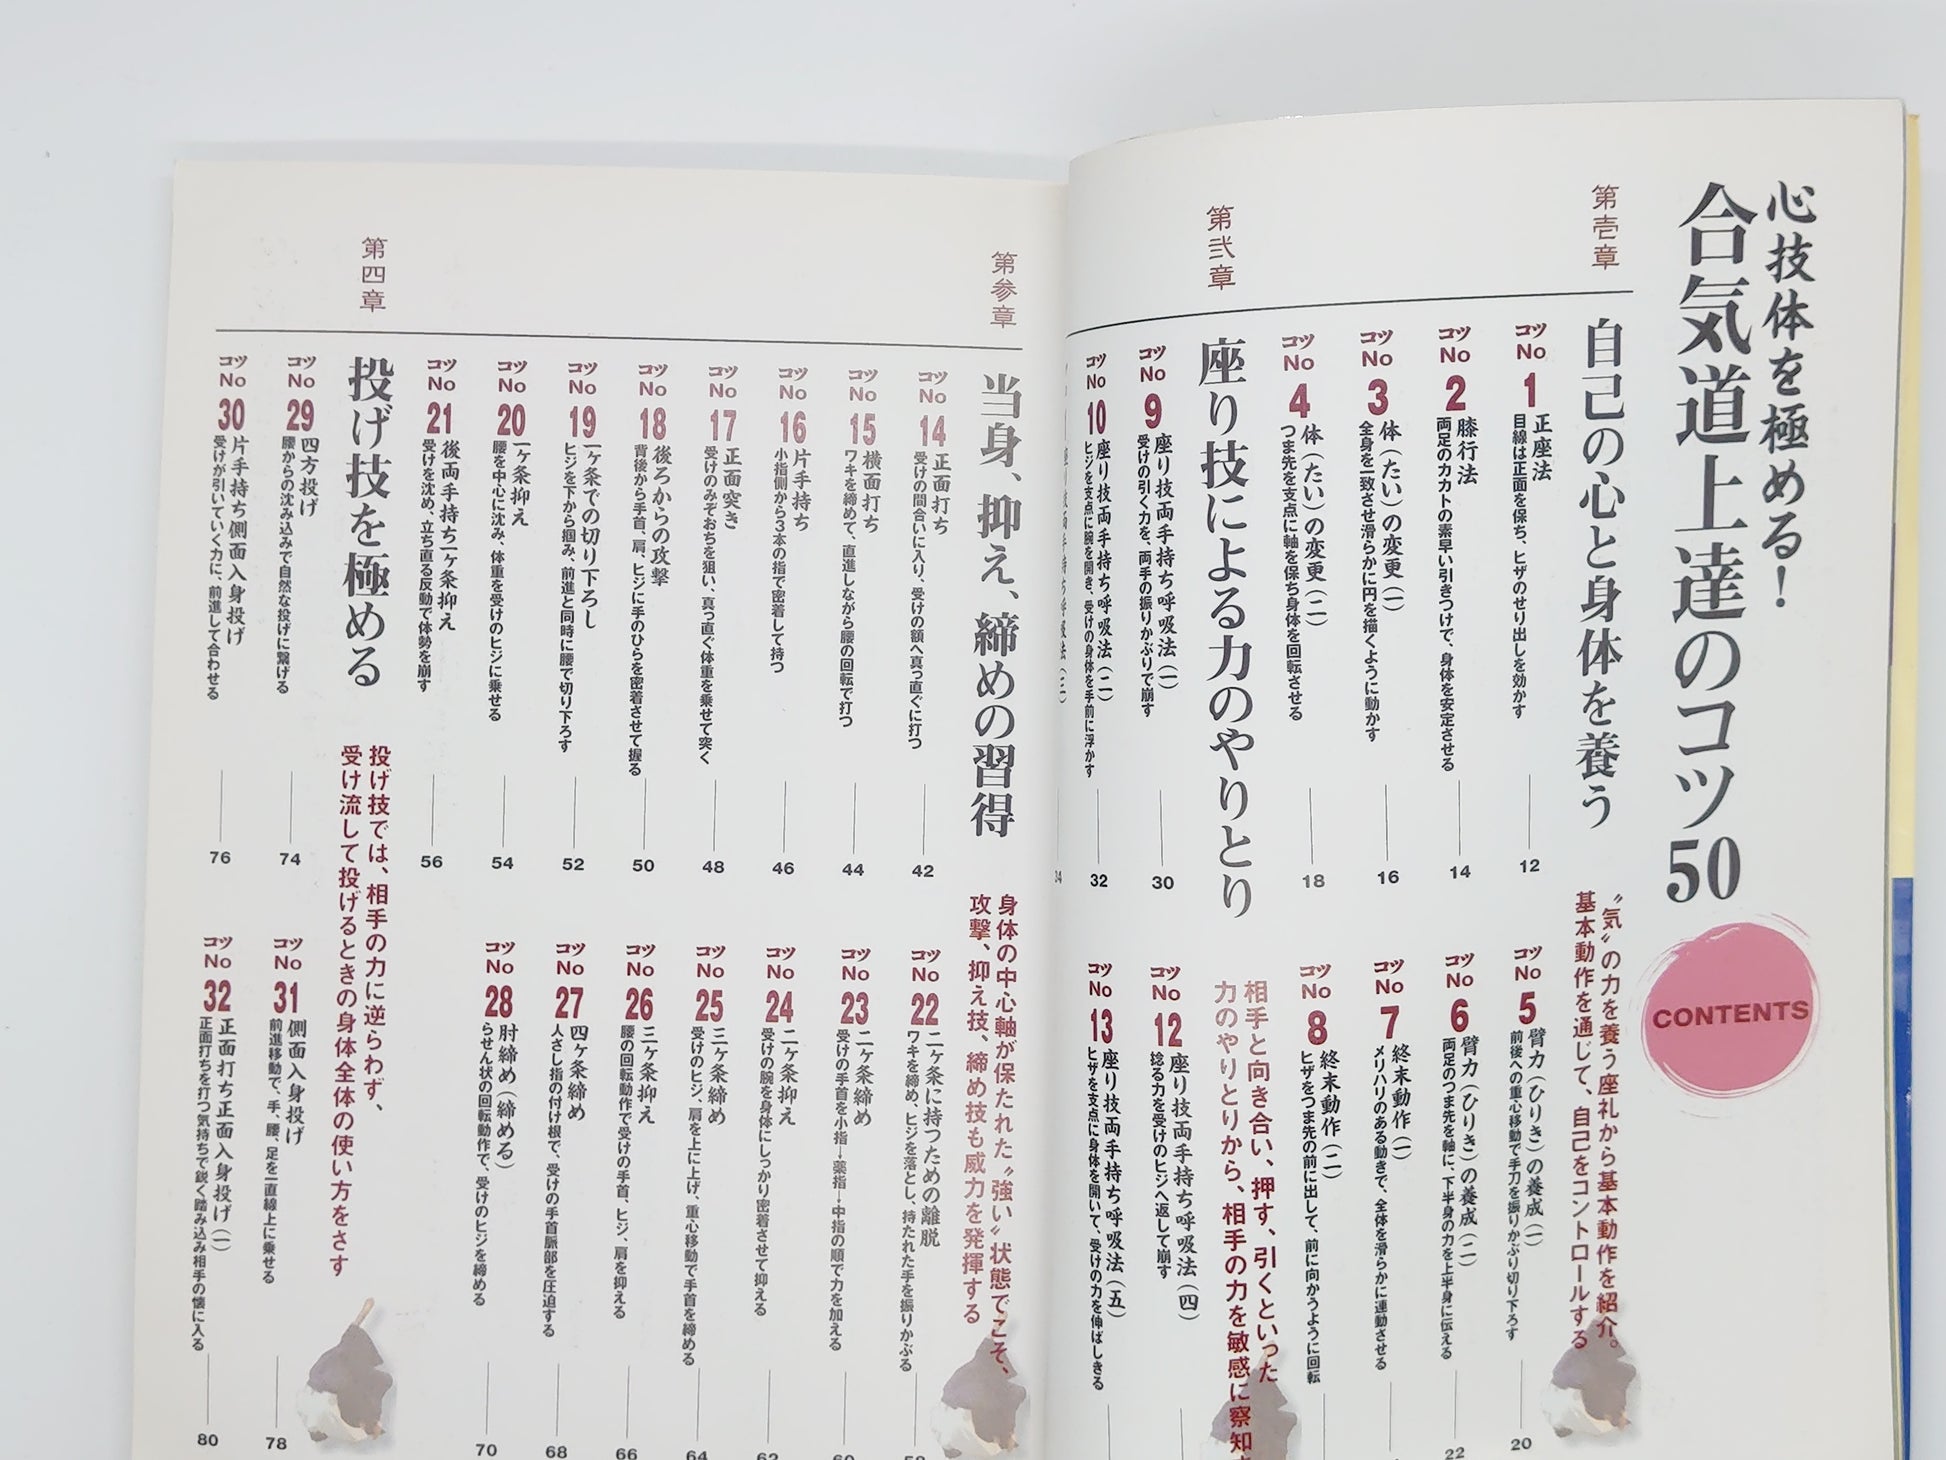 心技体を極める！
合気道上達のコツ50
CONTENTS
第壱章
自己の心と身体を養う
〝気〟の力を養う座礼から基本動作を紹介。
基本動作を通じて、自己をコントロールする
コツNo 1 正座法
目線は正面を保ち、ヒザのせり出しを効かす
12
コツNo 2 膝行法
両足のカカトの素早い引きつけで、身体を安定させる
14
コツNo 3 体（たい）の変更（一）
全身を一致させ滑らかに円を描くように動かす
16
コツNo 4 体（たい）の変更（二）
つま先を支点に軸を保ち身体を回転させる
18
コツNo 5 臂力（ひりき）の養成（一）
前後への重心移動で手刀を振りかぶり切り下ろす
20
コツNo 6 臂力（ひりき）の養成（二）
両足のつま先を軸に、下半身の力を上半身に伝える
22
コツNo 7 終末動作（一）
メリハリのある動きで、全体を滑らかに連動させる
コツNo 8 終末動作（二）
ヒザをつま先の前に出して、前に向かうように回転
第弐章
座り技による力のやりとり
相手と向き合い、押す、引くといった
力のやりとりから、相手の力を敏感に察知
コツNo 9 座り技両手持ち呼吸法（一）
受けの引く力を、両手の振りかぶりで崩す
30
コツNo 10 座り技両手持ち呼吸法（二）
ヒジを支点に腕を開き、受けの身体を手前に浮かす
32
座り技両手持ち呼吸法（三）
34
コツNo 12 座り技両手持ち呼吸法（四）
捻る力を受けのヒジへ返して崩す
コツNo 13 座り技両手持ち呼吸法（五）
ヒザを支点に身体を開いて、受けの力を伸ばしきる
第参章
当身、抑え、締めの習得
身体の中心軸が保たれた〝強い〟状態でこそ、
攻撃、抑え技、締め技も威力を発揮する
コツNo 14 正面打ち
受けの間合いに入り、受けの額へ真っ直ぐに打つ
42
コツNo 15 横面打ち
ワキを締めて、直進しながら腰の回転で打つ
44
コツNo 16 片手持ち
小指側から3本の指で密着して持つ
46
コツNo 17 正面突き
受けのみぞおちを狙い、真っ直ぐ体重を乗せて突く
48
コツNo 18 後ろからの攻撃
背後から手首、肩、ヒジに手のひらを密着させて握る
50
コツNo 19 一ヶ条での切り下ろし
ヒジを下から掴み、前進と同時に腰で切り下ろす
52
コツNo 20 一ヶ条抑え
腰を中心に沈み、体重を受けのヒジに乗せる
54
コツNo 21 後両手持ち一ヶ条抑え
受けを沈め、立ち直る反動で体勢を崩す
56
コツNo 22 二ヶ条に持つための離脱
ワキを締め、ヒジを落とし、持たれた手を振りかぶる
58
コツNo 23 二ヶ条締め
受けの手首を小指→薬指→中指の順で力を加える
60
コツNo 24 二ヶ条抑え
受けの腕を身体にしっかり密着させて抑える
62
コツNo 25 三ヶ条締め
受けのヒジ、肩を上に上げ、重心移動で手首を締める
64
コツNo 26 三ヶ条抑え
腰の回転動作で受けの手首、ヒジ、肩を抑える
66
コツNo 27 四ヶ条締め
人さし指の付け根で、受けの手首脈部を圧迫する
68
コツNo 28 肘締め（締める）
らせん状の回転動作で、受けのヒジを締める
70
第四章
投げ技を極める
投げ技では、相手の力に逆らわず、
受け流して投げるときの身体全体の使い方をさす
コツNo 29 四方投げ
腰からの沈み込みで自然な投げに繋げる
74
コツNo 30 片手持ち側面入身投げ
受けが引いていく力に、前進して合わせる
76
コツNo 31 側面入身投げ
前進移動で、手、腰、足を一直線上に乗せる
78
コツNo 32 正面打ち正面入身投げ（一）
正面打ちを打つ気持ちで鋭く踏み込み相手の懐に入る
80